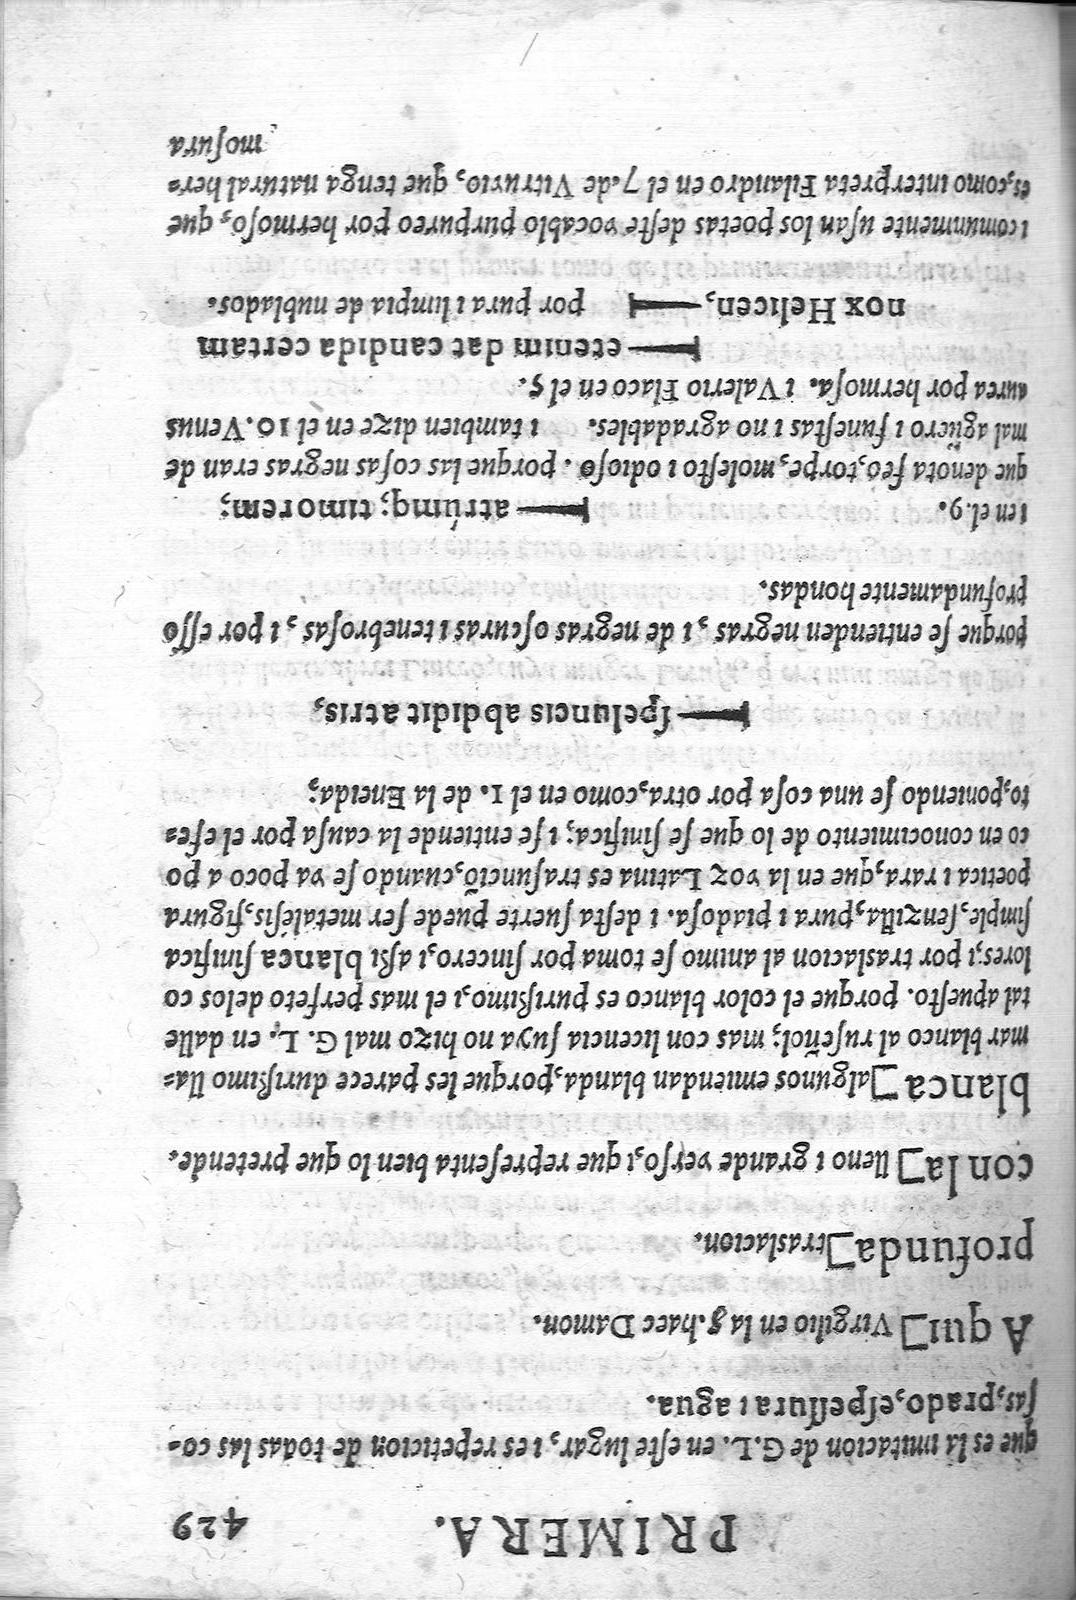 PRIMERA. 429
que es la imitacion de G.L. en eſte lugar, i es repeticion de todas las co-
ſas, prado, eſpeſſura i agua.
A qui] Virgilio en la 8. haec Damon.
profunda] traslacion.
con la] lleno i grande verſo, i que repreſenta bien lo que pretende.
blanca] algunos emiendan blanda, porque les parece durißimo lla-
mar blanco al ruſeñol; mas con licencia ſuya no hizo mal G. L. en dalle
tal apueſto. porque el color blanco es purißimo, i el mas perfeto delos co
lores; i por traslacion al animo ſe toma por ſincero, i aßi blanca ſinifica
ſimple, ſenzilla, pura i piadoſa. i deſta ſuerte puede ſer metalèſis, figura
poetica i rara, que en la voz Latina es traſunciõ, cuando ſe va poco a po
co en conocimiento de lo que ſe ſinifica; i ſe entiende la cauſa por el efe-
to, poniendo ſe una coſa por otra, como en el 1. de la Eneida;
ſpeluncis abdidit atris,
porque ſe entienden negras, i de negras oſcuras i tenebroſas, i por eſſo
profundamente hondas.
i en el. 9. atrúmq; timorem;
que denota feo, torpe, moleſto i odioſo. porque las coſas negras eran de
mal agüero i funeſtas i no agradables. i tambien dize en el 10. Venus
aurea por hermoſa. i Valerio Flaco en el 5.
etenim dat candida certam
nox Helicen, por pura i limpia de nublados.
i comunmente uſan los poetas deſte vocablo purpureo por hermoſo, que
es, como interpreta Filandro en el 7. de Vitruvio, que tenga natural her-
moſura